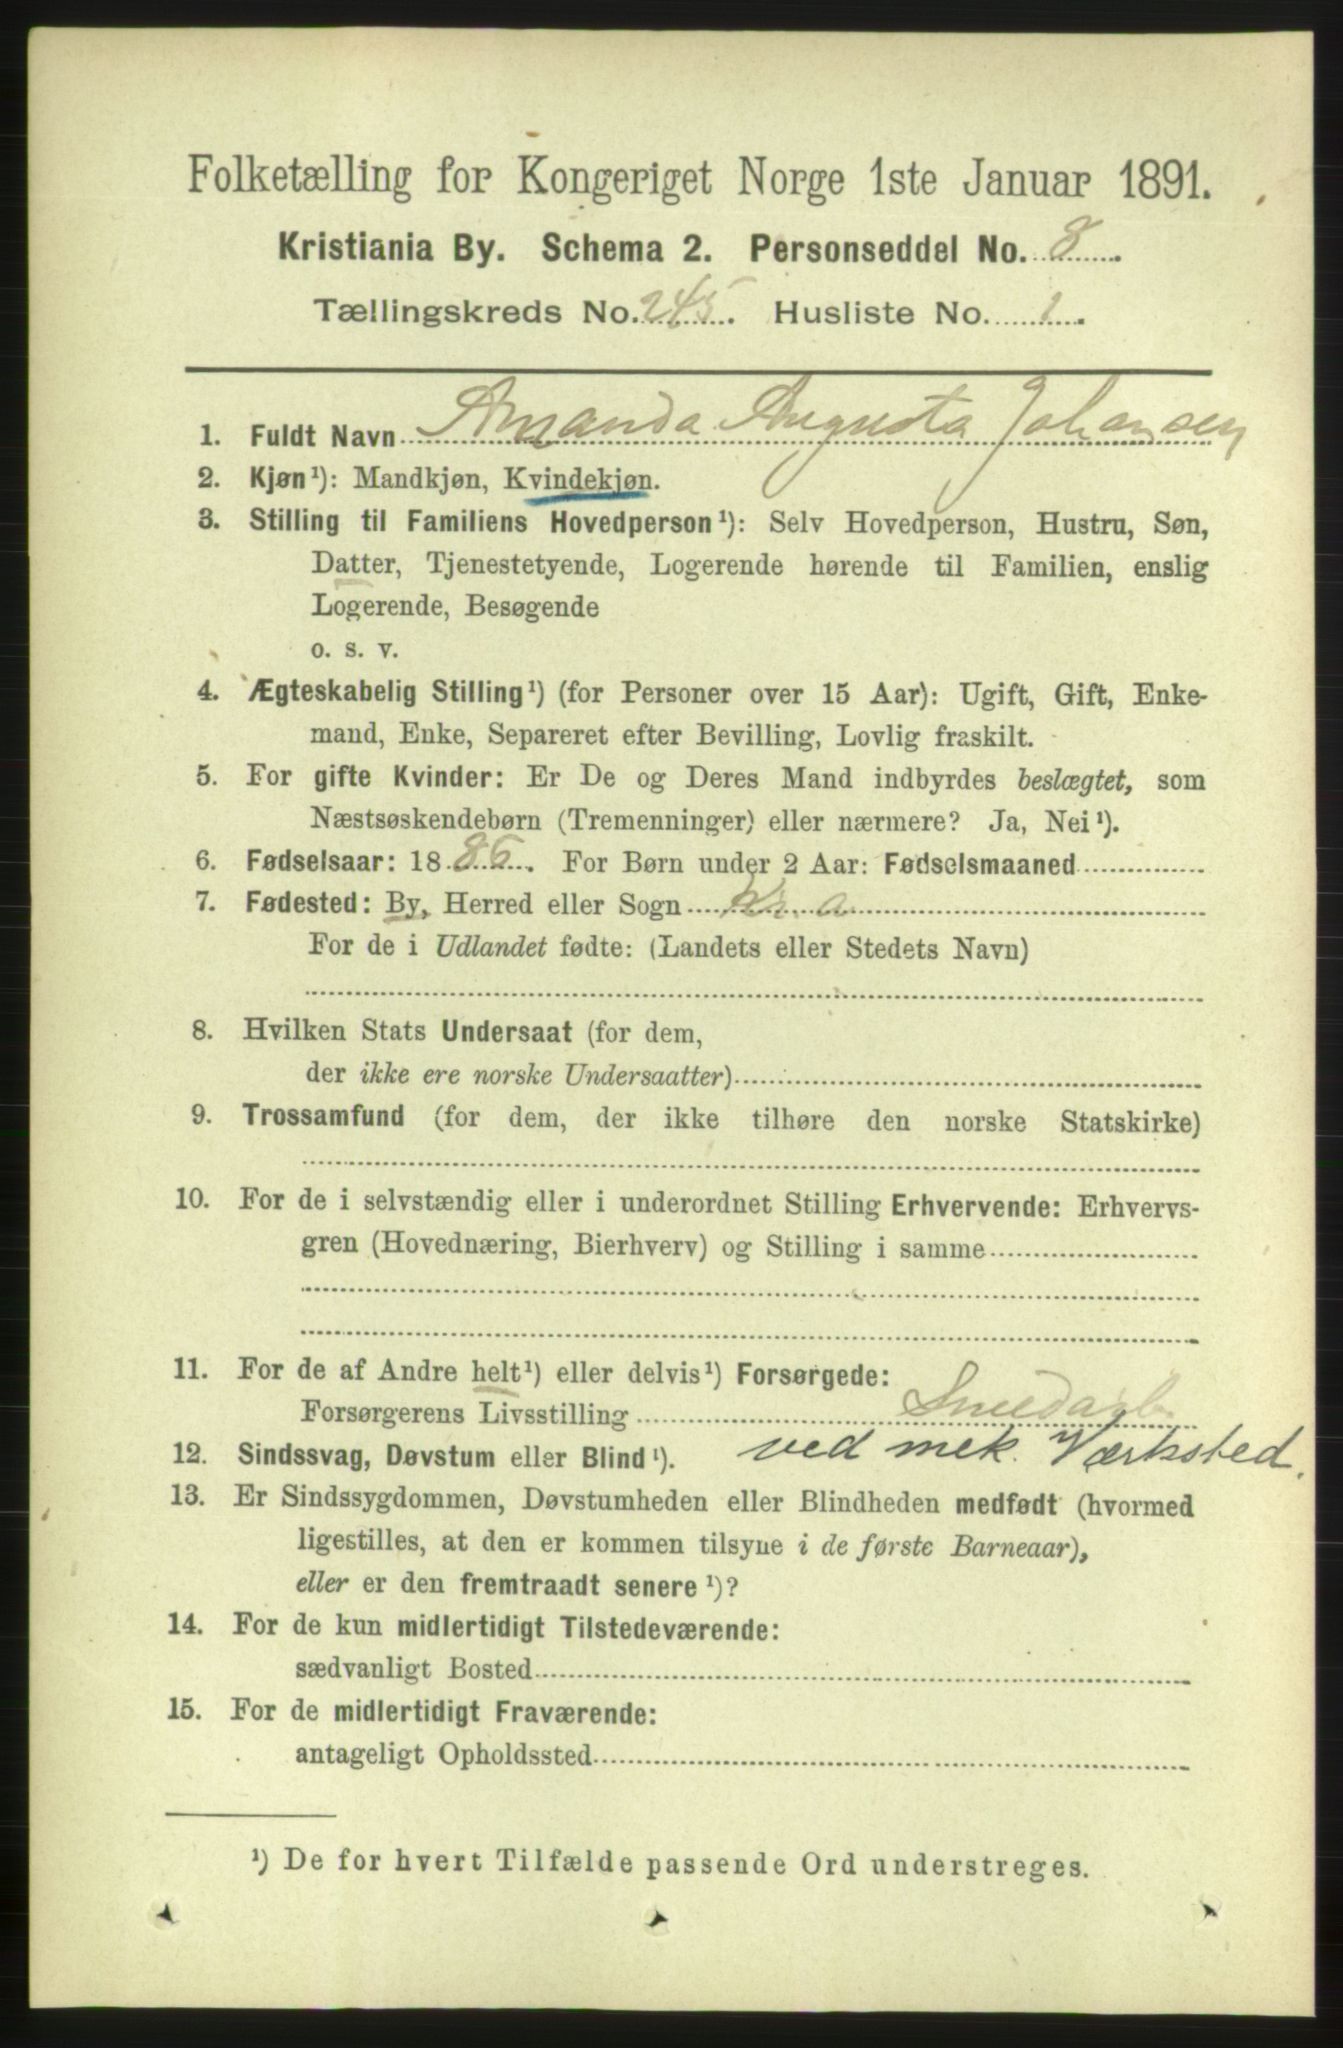 Folketælling for Kongeriget Norge 1ste Januar 1891.
Kristiania By. Schema 2. Personseddel No. 8.
Tællingskreds No. 245. Husliste No. 1.
1. Fuldt Navn Amanda Augusta Johansen
2. Kjøn¹): Mandkjøn, Kvindekjøn.
3. Stilling til Familiens Hovedperson¹): Selv Hovedperson, Hustru, Søn,
Datter, Tjenestetyende, Logerende hørende til Familien, enslig
Logerende, Besøgende
o. s. v.
4. Ægteskabelig Stilling¹) (for Personer over 15 Aar): Ugift, Gift, Enke-
mand, Enke, Separeret efter Bevilling, Lovlig fraskilt.
5. For gifte Kvinder: Er De og Deres Mand indbyrdes beslægtet, som
Næstsøskendebørn (Tremenninger) eller nærmere? Ja, Nei¹).
6. Fødselsaar: 1886. For Børn under 2 Aar: Fødselsmaaned
7. Fødested: By, Herred eller Sogn Kr.a
For de i Udlandet fødte: (Landets eller Stedets Navn)
8. Hvilken Stats Undersaat (for dem,
der ikke ere norske Undersaatter)
9. Trossamfund (for dem, der ikke tilhøre den norske Statskirke)
10. For de i selvstændig eller i underordnet Stilling Erhvervende: Erhvervs-
gren (Hovednæring, Bierhverv) og Stilling i samme
11. For de af Andre helt¹) eller delvis¹) Forsørgede:
Forsørgerens Livsstilling Smedarb
12. Sindssvag, Døvstum eller Blind¹). ved mek. Værksted.
13. Er Sindssygdommen, Døvstumheden eller Blindheden medfødt (hvormed
ligestilles, at den er kommen tilsyne i de første Barneaar),
eller er den fremtraadt senere¹)?
14. For de kun midlertidigt Tilstedeværende:
sædvanligt Bosted
15. For de midlertidigt Fraværende:
antageligt Opholdssted
¹) De for hvert Tilfælde passende Ord understreges.